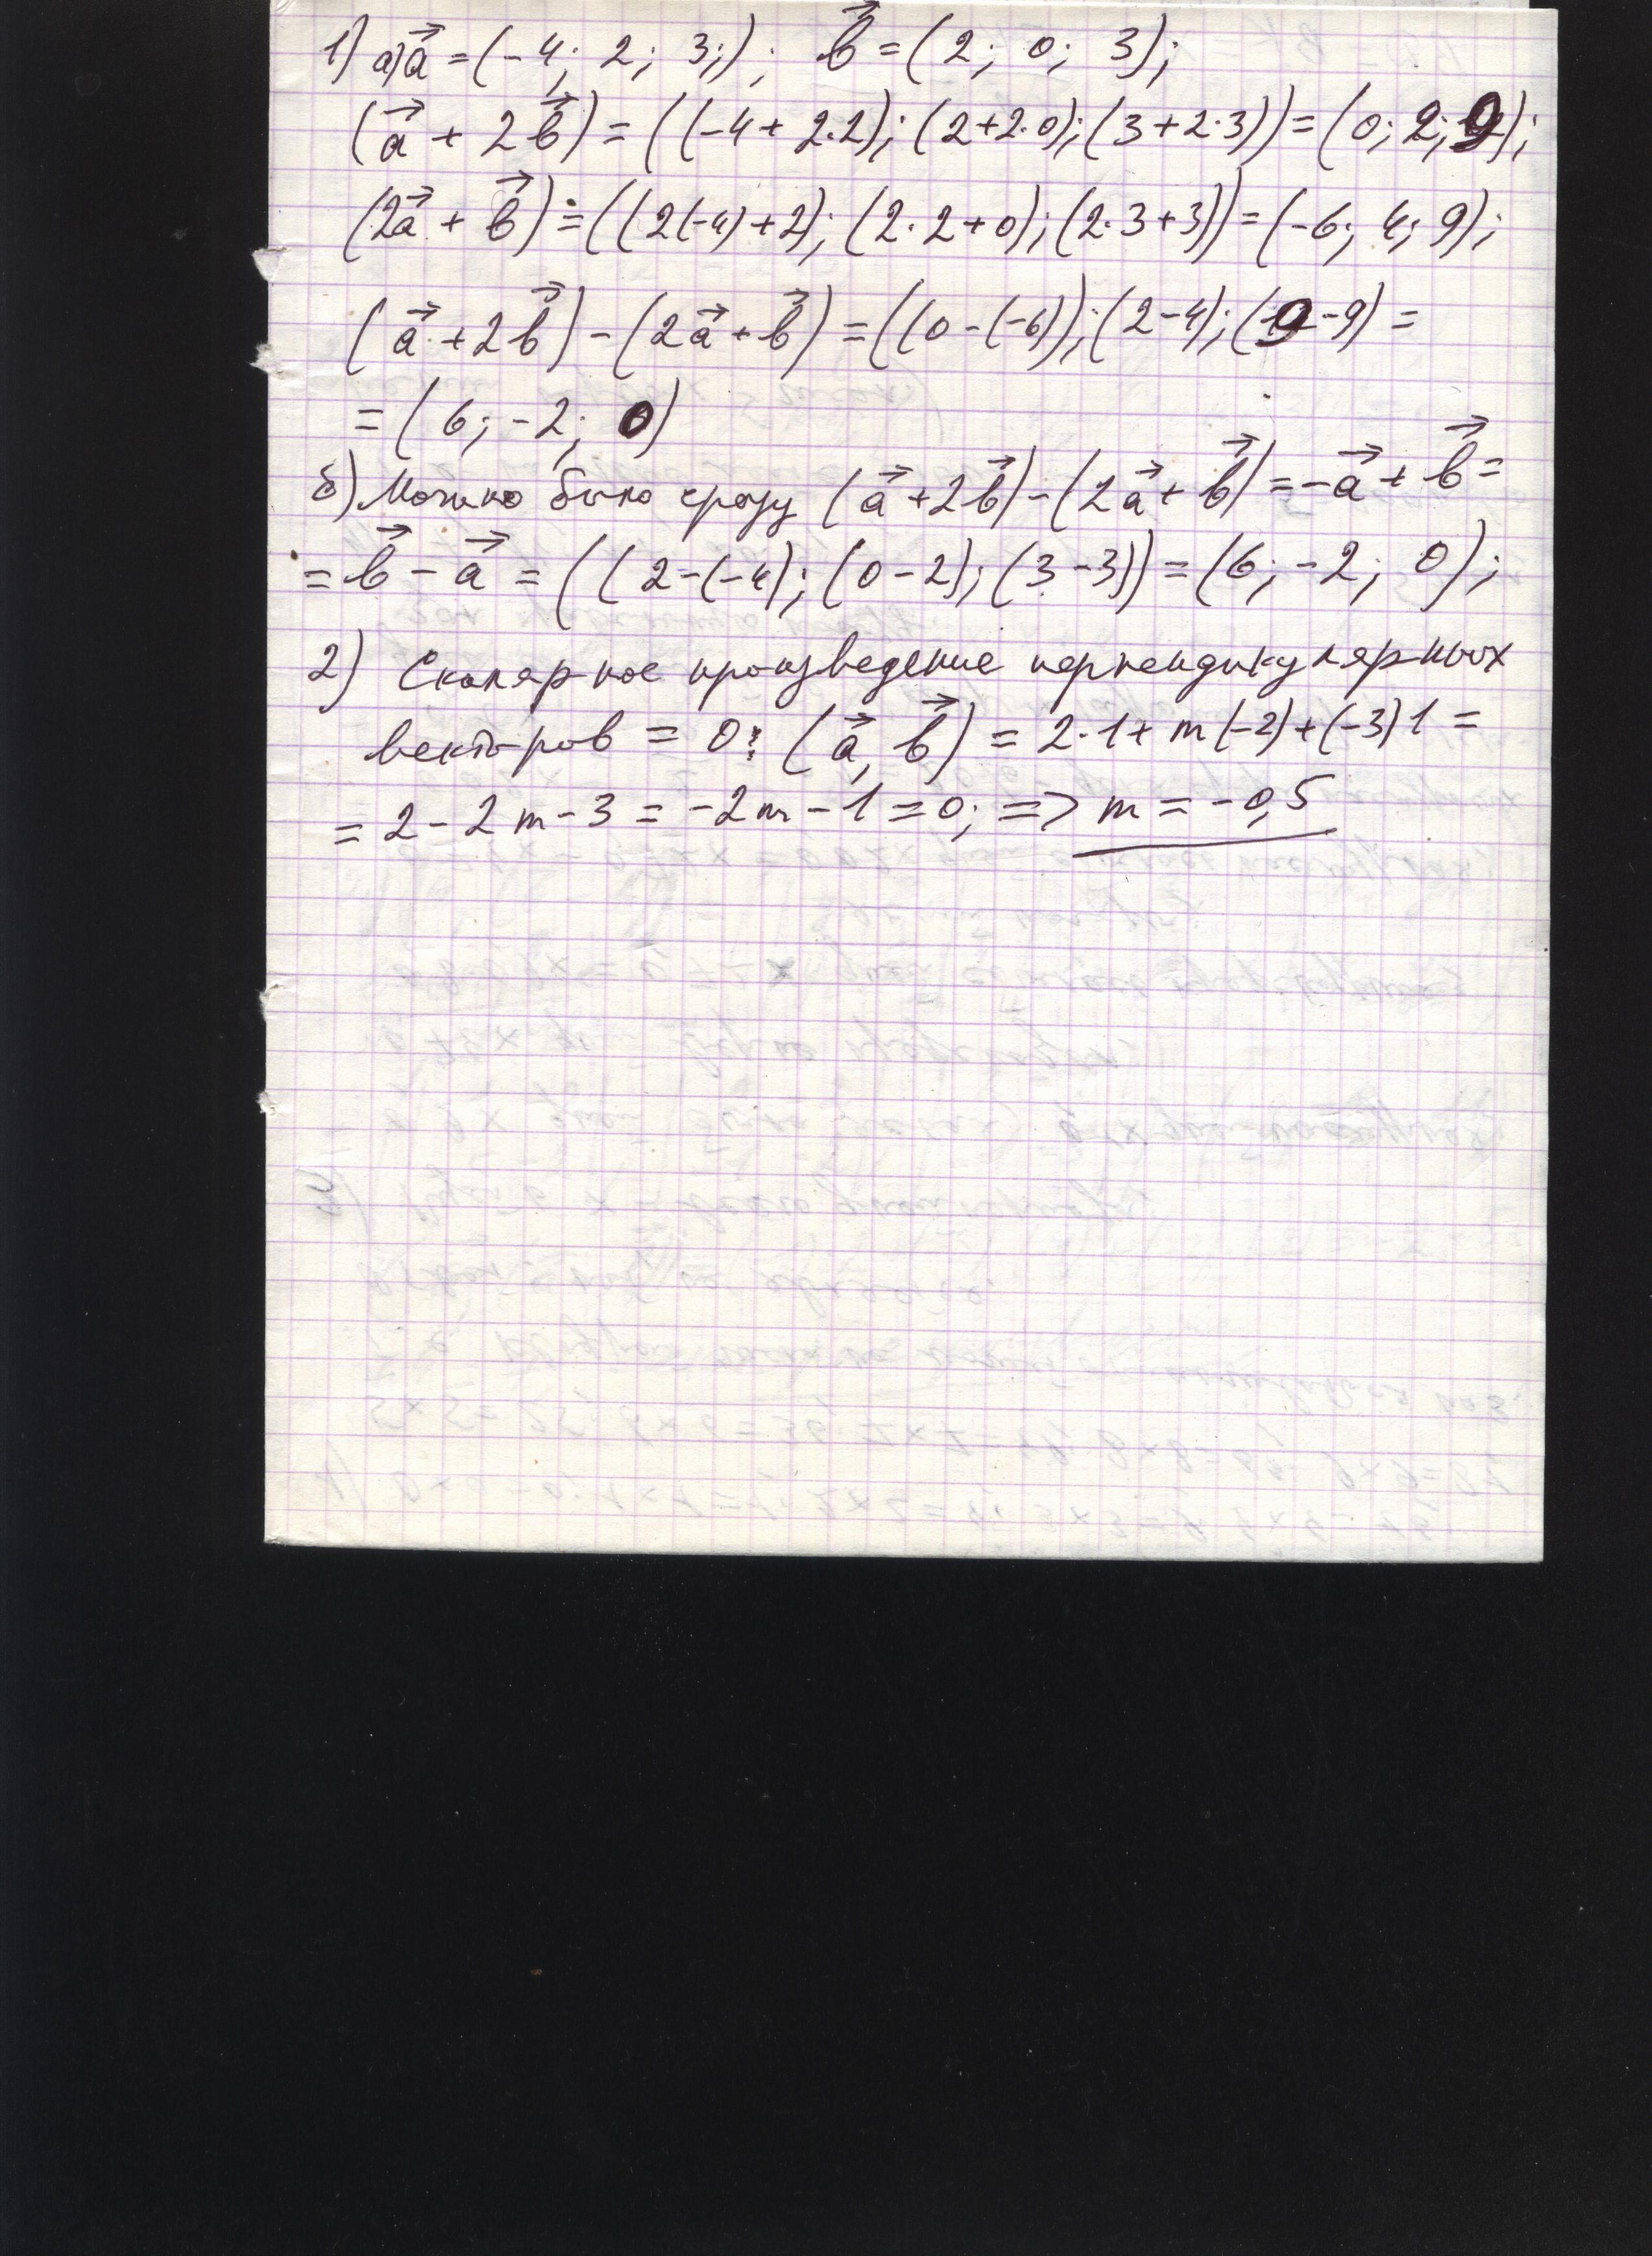 1) а) a⃗ = (-4; 2; 3;); b⃗ = (2; 0; 3);
(a⃗ + 2b⃗) = ((-4 + 2·2); (2+2·0); (3+2·3)) = (0; 2; 9);
(2a⃗ + b⃗) = ((2(-4)+2); (2·2+0); (2·3+3)) = (-6; 4; 9);
(a⃗ + 2b⃗) - (2a⃗ + b⃗) = ((0-(-6)); (2-4); (9-9) =
= (6; -2; 0)
б) Можно было сразу (a⃗ + 2b⃗) - (2a⃗ + b⃗) = -a⃗ + b⃗ =
= b⃗ - a⃗ = ((2-(-4); (0-2); (3-3)) = (6; -2; 0);
2) Скалярное произведение перпендикулярных
векторов = 0: (a⃗, b⃗) = 2·1 + m(-2) + (-3)1 =
= 2 - 2m - 3 = -2m - 1 = 0; => m = -0,5